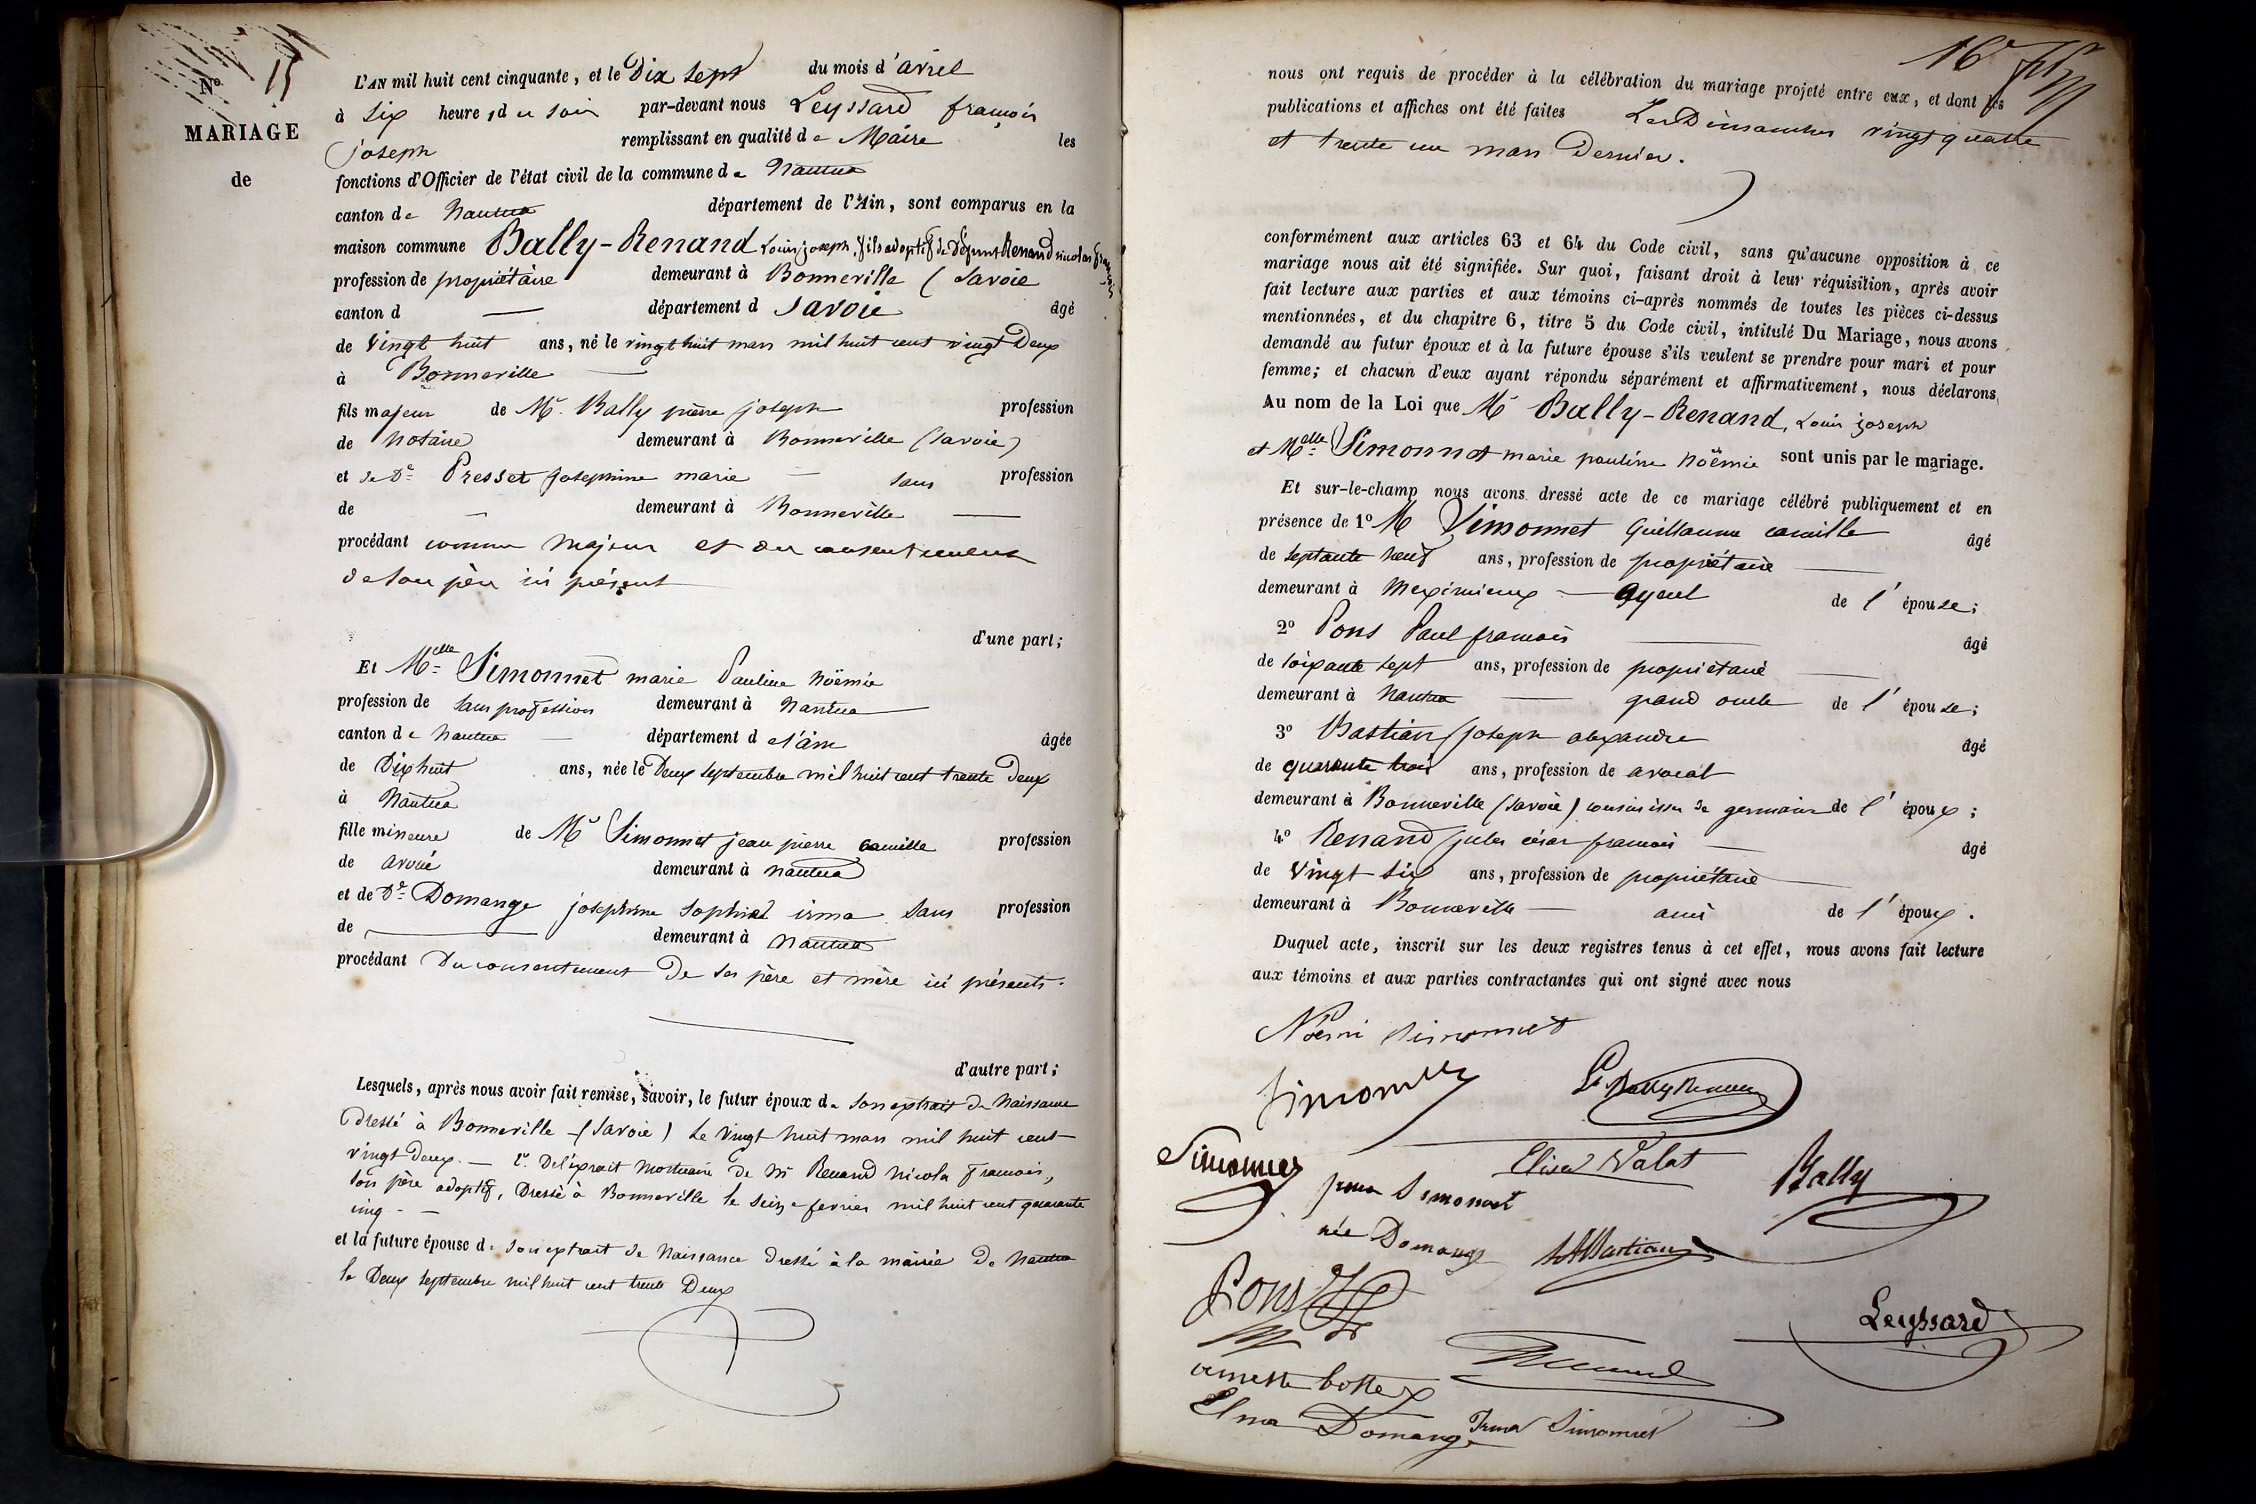 No 15
MARIAGE
de
L'AN mil huit cent cinquante, et le Dix sept du mois d'avril
à six heures du soir par-devant nous Leyssard françois
joseph remplissant en qualité de Maire les
fonctions d'Officier de l'état civil de la commune de Nantua
canton de Nantua département de l'Ain, sont comparus en la
maison commune Bally-Renand Louis joseph, fils adoptif de Défunt Renand nicolas françois
profession de propriétaire demeurant à Bonneville (Savoie
canton d — département d Savoie âgé
de Vingt huit ans, né le vingt huit mars mil huit cent vingt Deux
à Bonneville —
fils majeur de Mr. Bally pierre joseph profession
de Notaire demeurant à Bonneville (Savoie)
et de De Presset Josephine marie — sans profession
de — demeurant à Bonneville —
procédant comme Majeur et du consentement
de son père ici présent
d'une part;
Et Melle Simonnet marie Pauline Noëmie
profession de sans profession demeurant à Nantua
canton de Nantua — département d el'ain âgée
de Dix huit ans, née le Deux septembre mil huit cent trente Deux
à Nantua
fille mineure de Mr Simonnet jean pierre camille profession
de avoué demeurant à Nantua
et de De Domange josephine sophie irma sans profession
de — demeurant à Nantua
procédant Du consentement De ses père et mère ici présents.
d'autre part;
Lesquels, après nous avoir fait remise, savoir, le futur époux de son extrait de Naissance
Dressé à Bonneville (Savoie) le Vingt huit mars mil huit cent
vingt deux. — 2° De l'extrait Mortuaire de Mr Renand Nicolas François,
son père adoptif, Dressé à Bonneville le seize fevrier mil huit cent quarante
cinq — 
et la future épouse de son extrait de Naissance dressé à la mairie de Nantua
le Deux septembre mil huit cent trente Deux
16e
nous ont requis de procéder à la célébration du mariage projeté entre eux, et dont les
publications et affiches ont été faites Les Dimanches vingt quatre
et trente un mars Dernier.
conformément aux articles 63 et 64 du Code civil, sans qu'aucune opposition à ce
mariage nous ait été signifiée. Sur quoi, faisant droit à leur réquisition, après avoir
fait lecture aux parties et aux témoins ci-après nommés de toutes les pièces ci-dessus
mentionnées, et du chapitre 6, titre 5 du Code civil, intitulé Du Mariage, nous avons
demandé au futur époux et à la future épouse s'ils veulent se prendre pour mari et pour
femme; et chacun d'eux ayant répondu séparément et affirmativement, nous déclarons
Au nom de la Loi que Mr Bally-Renand, Louis joseph
et Melle Simonnet marie pauline Noëmie sont unis par le mariage.
Et sur-le-champ nous avons dressé acte de ce mariage célébré publiquement et en
présence de 1° M Simonnet Guillaume camille âgé
de septante neuf ans, profession de propriétaire —
demeurant à Meximieux — ayeul de l'épouse;
2° Pons Paul francois — âgé
de soixante sept ans, profession de propriétaire —
demeurant à Nantua — grand oncle de l'épouse;
3° Bastian Joseph alexandre âgé
de quarante trois ans, profession de avocat
demeurant à Bonneville (Savoie) cousin issu de germain de l'époux;
4° Renand jules césar francois — âgé
de Vingt six ans, profession de propriétaire —
demeurant à Bonneville — ami de l'époux.
Duquel acte, inscrit sur les deux registres tenus à cet effet, nous avons fait lecture
aux témoins et aux parties contractantes qui ont signé avec nous
Noémi Simonnet
Simonnet
L. Bally Renand
Simonnet
Elisa Valat
Bally
Simonnet
née Domange
JA Bastian
Pons
Leyssard
Renand
Elma Domange
Irma Simonnet